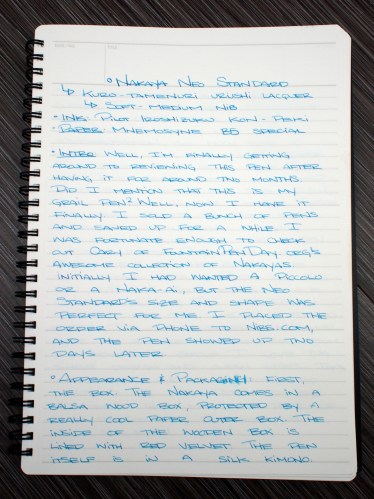 • Nakaya Neo Standard
↳ Kuro-Tamenuri Urushi Lacquer
↳ Soft-Medium Nib
• Ink: Pilot Iroshizuku Kon-Peki
• Paper: Mnemosyne B5 Special
• Intro: Well, I'm finally getting
around to reviewing this pen after
having it for around two months.
Did I mention that this is my
grail pen? Well, now I have it
finally. I sold a bunch of pens
and saved up for a while. I
was fortunate enough to check
out Cary of FountainPenDay.org's
awesome collection of Nakayas.
Initially I had wanted a Piccolo
or a Naka-Ai, but the Neo
Standard's size and shape was
perfect for me. I placed the
order via phone to Nibs.com,
and the pen showed up two
days later.
• Appearance & Packaging: First,
the box. The Nakaya comes in a
balsa wood box, protected by a
really cool paper outer box. The
inside of the wooden box is
lined with red velvet. The pen
itself is in a silk kimono.